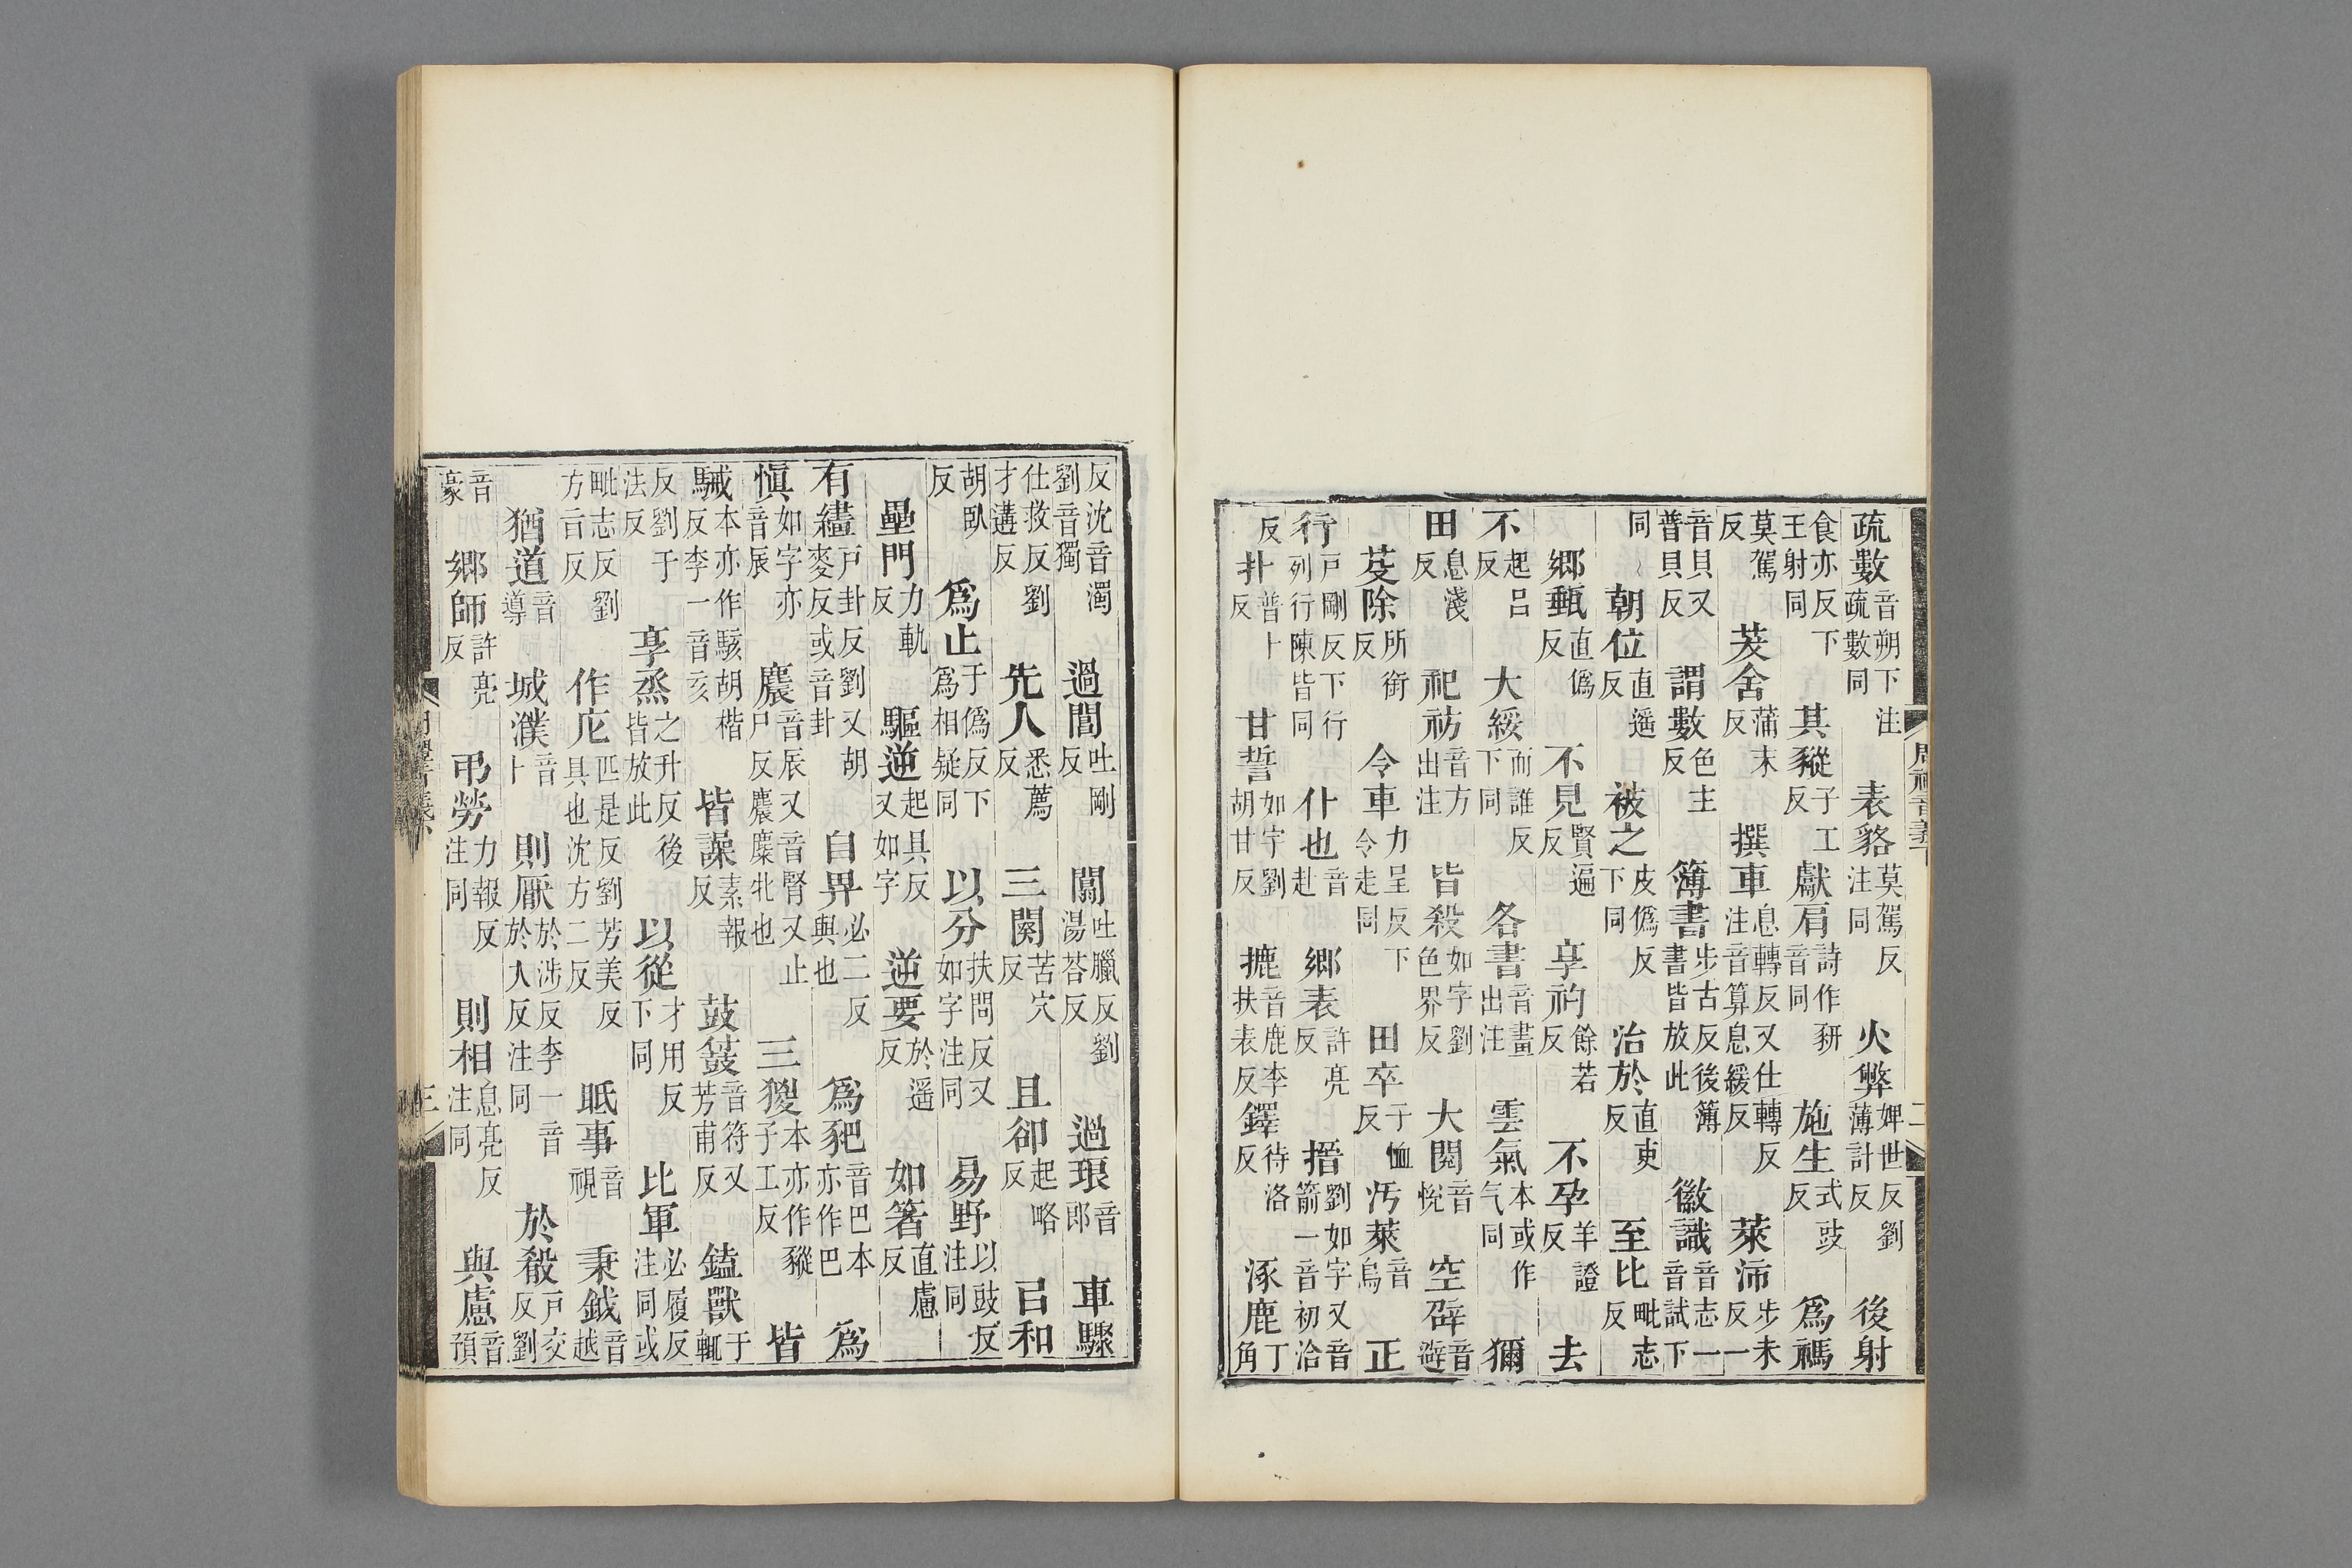 疏數音朔下注疏數同表貉莫駕反注同火弊婢世反劉薄計反後射
食亦反下王射同其豵子工反獻肩詩作豜音同施生式豉反爲禡
莫駕反茇舍蒲末反撰車息轉反又仕轉反注音算息緩反萊沛步末反一
音貝又普貝反謂數色主反簿書步古反後簿書皆放此徽識音志一音試下
同朝位直遥反被之皮僞反下同治於直吏反至比毗志反
鄉甀直僞反不見賢遍反享礿餘若反不孕羊證反去
不起呂反大綏而誰反下同各書音畫出注雲氣本或作气同獮
田息淺反祀祊音方出注皆殺如字劉色界反大閱音悅空辟音避
芟除所銜反令車力呈反下令走同田卒子恤反汚萊音烏正
行戶剛反下行列行陳皆同仆也音赴鄉表許亮反搢劉如字又音箭一音初洽
反扑普卜反甘誓如字劉胡甘反摝音鹿李扶表反鐸待洛反涿鹿丁角
周禮音義下 二
反沈音濁劉音獨過閶吐剛反闒吐臘反劉湯荅反過琅音郎車驟
仕救反劉才遘反先人悉薦反三闋苦穴反且卻起略反已和
胡臥反爲止于僞反下爲相疑同以分扶問反又如字注同易野以豉反注同
壘門力軌反驅逆起具反又如字逆要於遥反如箸直慮反
有繣戶卦反劉又胡麥反或音卦自畀必二反與也爲豝音巴本亦作巴爲
愼如字亦音辰麎音辰又音腎又止尸反麎麋牝也三豵本亦作豵子工反皆
駴本亦作駭胡楷反李一音亥皆譟素報反鼓鼜音符又芳甫反鎰獸于輒
反劉于法反享烝之升反後皆放此以從才用反下同比軍必履反注同或
毗志反劉方㫖反作庀匹是反劉芳美反具也沈方二反眂事音視秉鉞音越
猶道音導城濮音卜則厭於涉反李一音於入反注同於殽戶交反劉
音豪鄉師許亮反弔勞力報反注同則相息亮反注同與慮音預
三